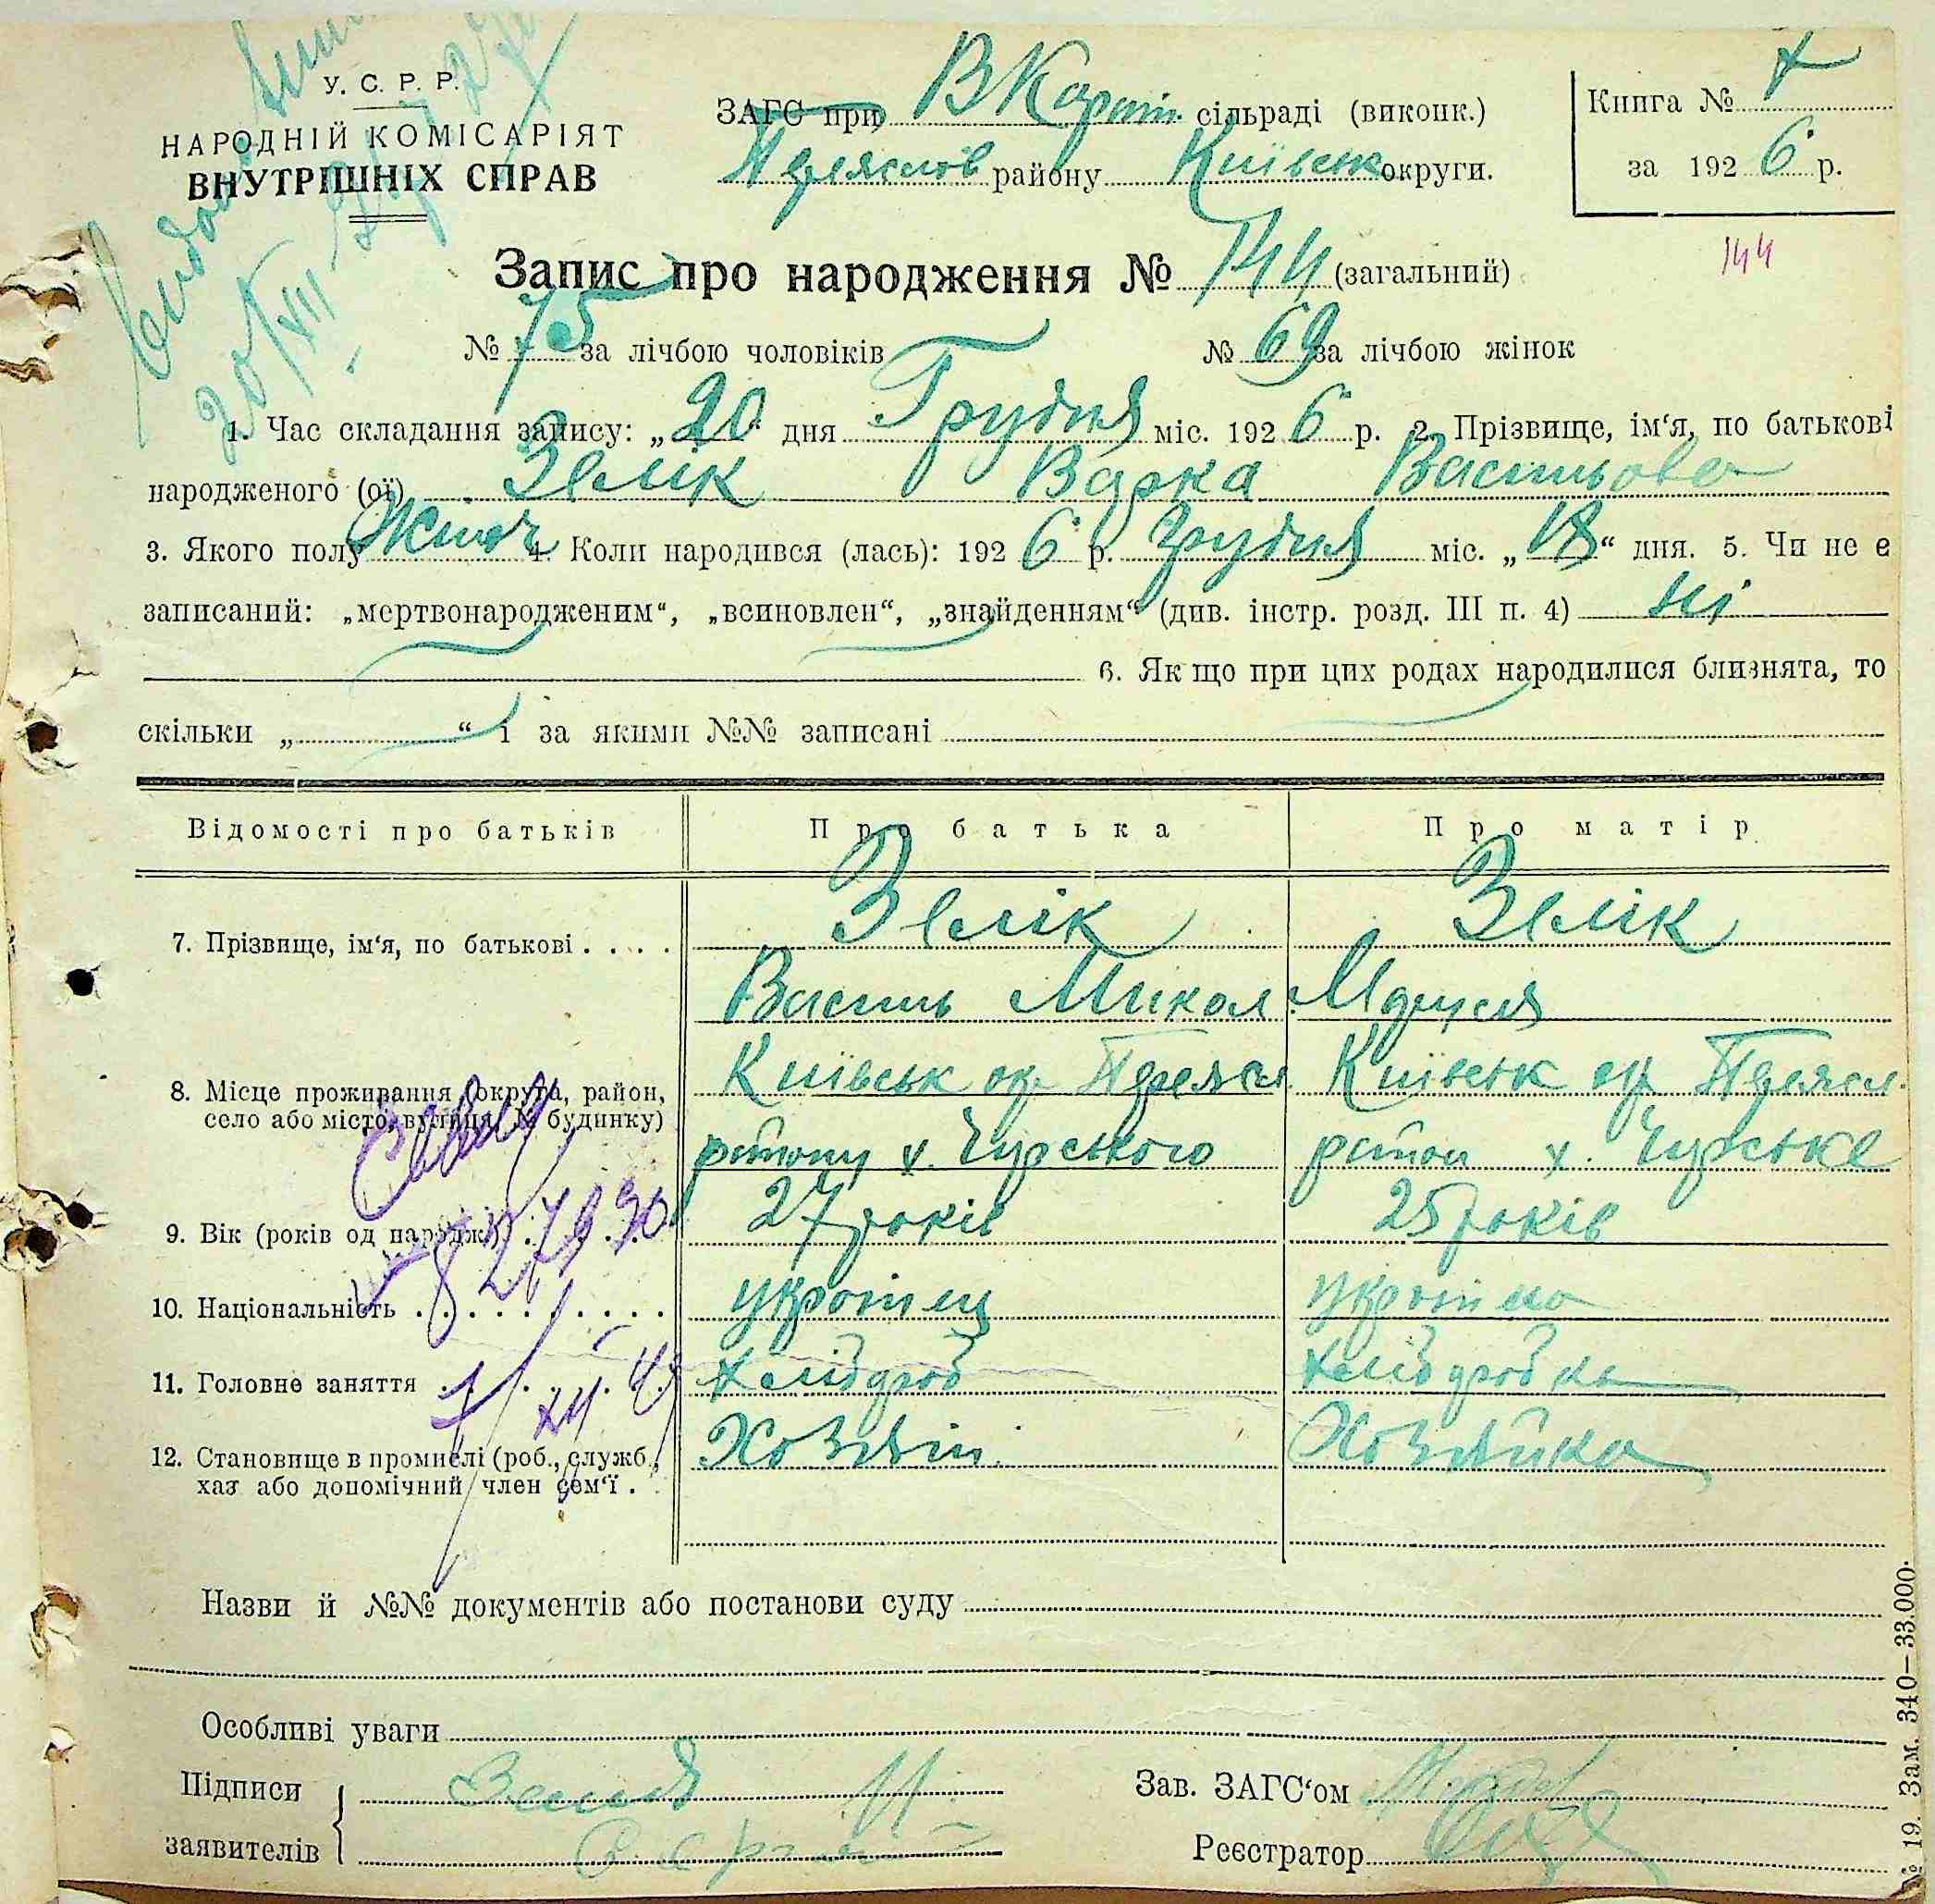 У. С. Р. Р.
НАРОДНІЙ КОМІСАРІЯТ
ВНУТРІШНІХ СПРАВ
ЗАГС при В Карат. сільраді (виконк.)
Переяслів району Київськ округи.
Книга №
за 1926 р.
144
Запис про народження № 144 (загальний)
№ 75 за лічбою чоловіків № 69 за лічбою жінок
20/XII
1. Час складання запису: „20" дня Грудня міс. 1926 р. 2. Прізвище, ім'я, по батькові
народженого (ої) Зелік Варка Васильова
3. Якого полу Жіноч 4. Коли народився (лась): 1926 р. Грудня міс. „18" дня. 5. Чи не є
записаний: „мертвонародженим", „всиновлен", „знайденням" (див. інстр. розд. III п. 4) ні
6. Як що при цих родах народилися близнята, то
скільки „ " і за якими №№ записані
Відомості про батьків Про батька Про матір
7. Прізвище, ім'я, по батькові . . . . Зелік Зелік
Василь Микол. Маруся
8. Місце проживання (округа, район, Київськ окр. Переясл. Київськ окр Переясл.
село або місто, вулиця, № будинку) району х. Чурського район х. Чурське
9. Вік (років од народж.) . . . . 27 років 25 років
10. Національність . . . . . . . . . українец українка
11. Головне заняття . . . . . . хлібороб хліборобка
12. Становище в промислі (роб., служб., Хозяїн. Хозяйка
хаз або допомічний член сем'ї .
Назви й №№ документів або постанови суду
Особливі уваги
Підписи
заявителів
Зав. ЗАГС'ом
Реєстратор
№ 19. Зам. 340—33.000.